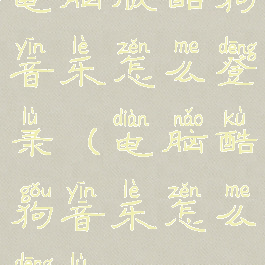 yīn lè zěn me dēng
音乐怎么登
lù diàn nǎo kù
录(电脑酷
gǒu yīn lè zěn me
狗音乐怎么
dēng lù